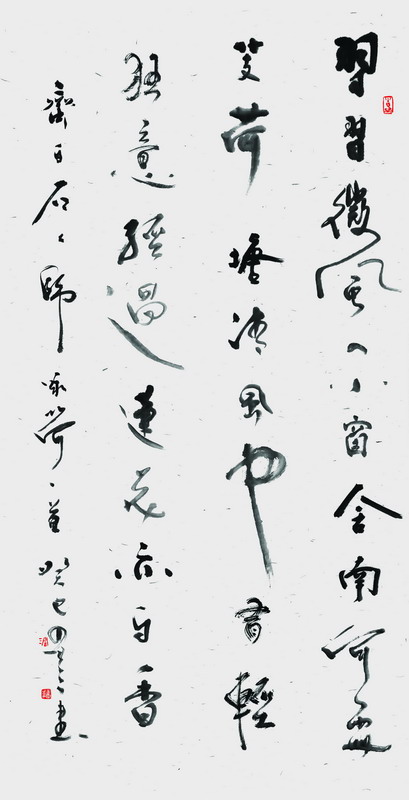 習習微風小窗舍南何處
芰荷塘清風中有輕
狂意經過蓮花亦自香
齊白石詠荷一首癸巳書